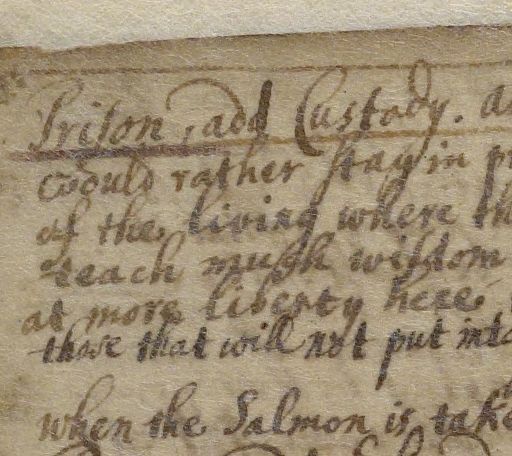 Prison, add Custody. a
would rather stay in pr
of the living where th
teach mush wisdom
at more liberty here
those that will not put into
when the Salmon is take